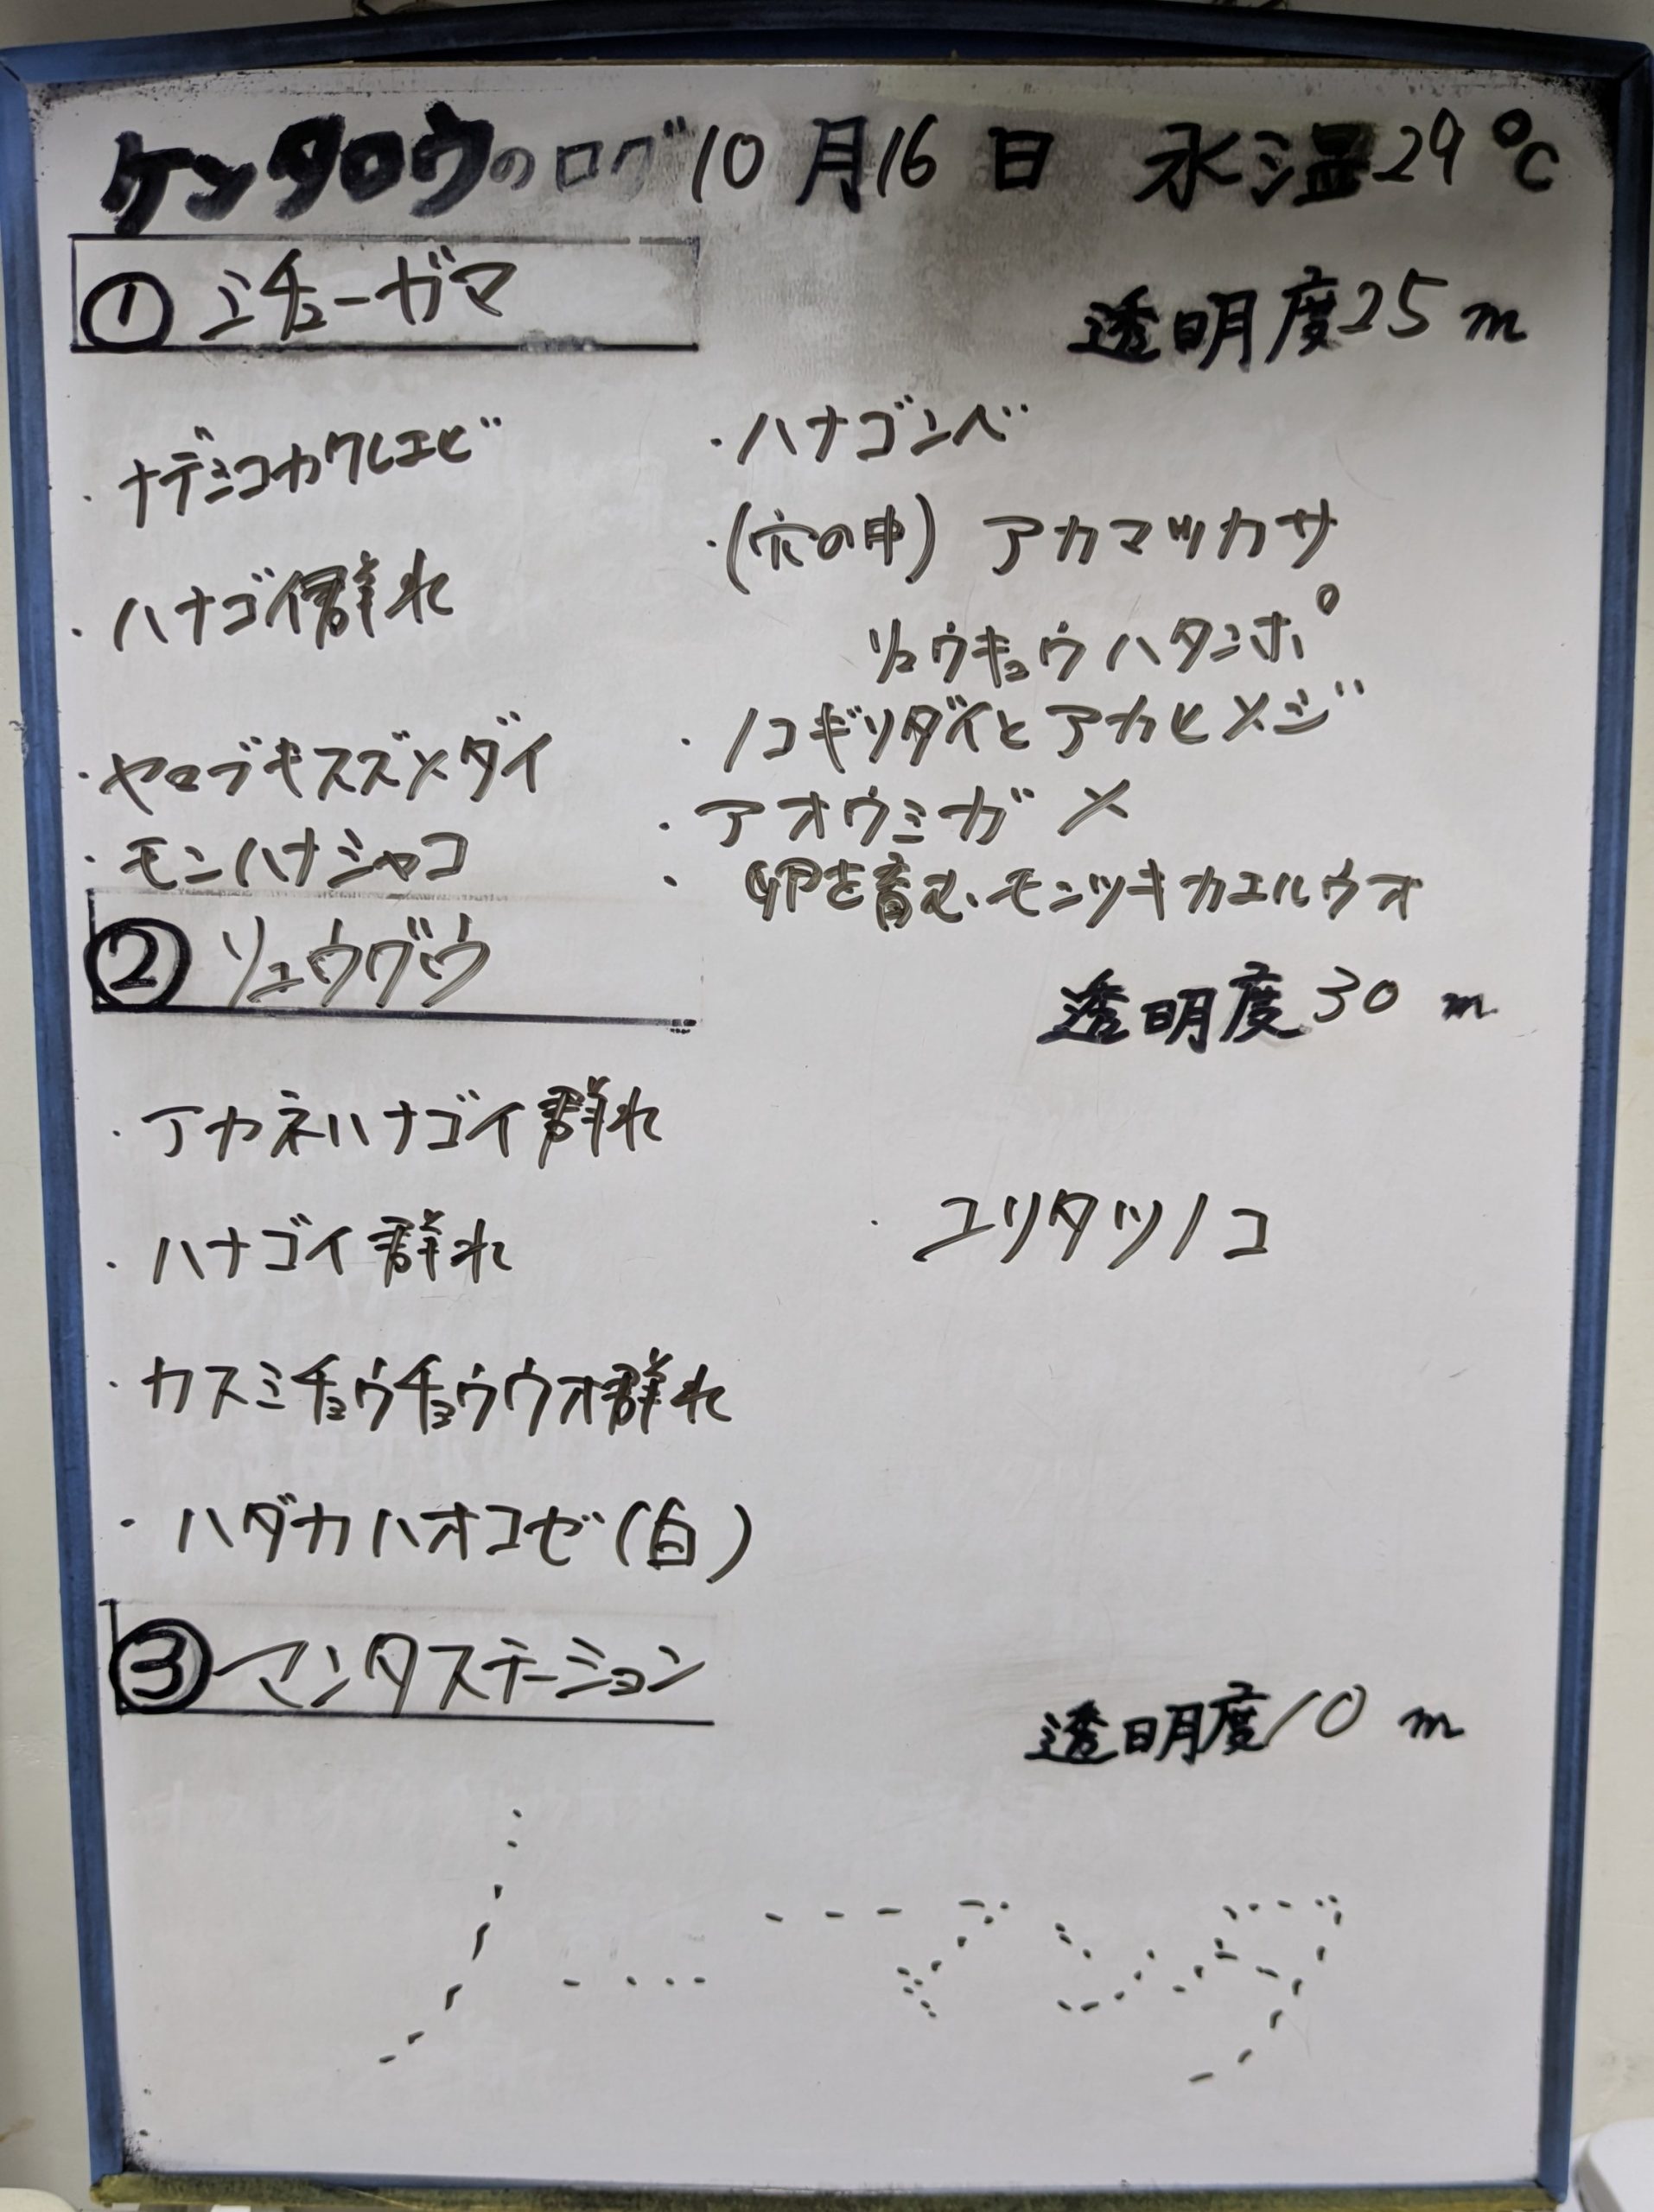 ケンタロウのログ 10月16日 水温29℃
① ミチューガマ
透明度25m
・ナデシコカクレエビ
・ハナゴイ群れ
・ヤマブキスズメダイ
・モンハナシャコ
・ハナゴンベ
・(穴の中) アカマツカサ
リュウキュウハタンポ
・ノコギリダイとアカヒメジ
・アオウミガメ
・卵を育む、モンツキカエルウオ
② リュウグウ
透明度30m
・アカネハナゴイ群れ
・ハナゴイ群れ
・カスミチョウチョウウオ群れ
・ハダカハオコゼ(白)
・ユリタツノコ
③ マンタステーション
透明度10m
ノーマンタ